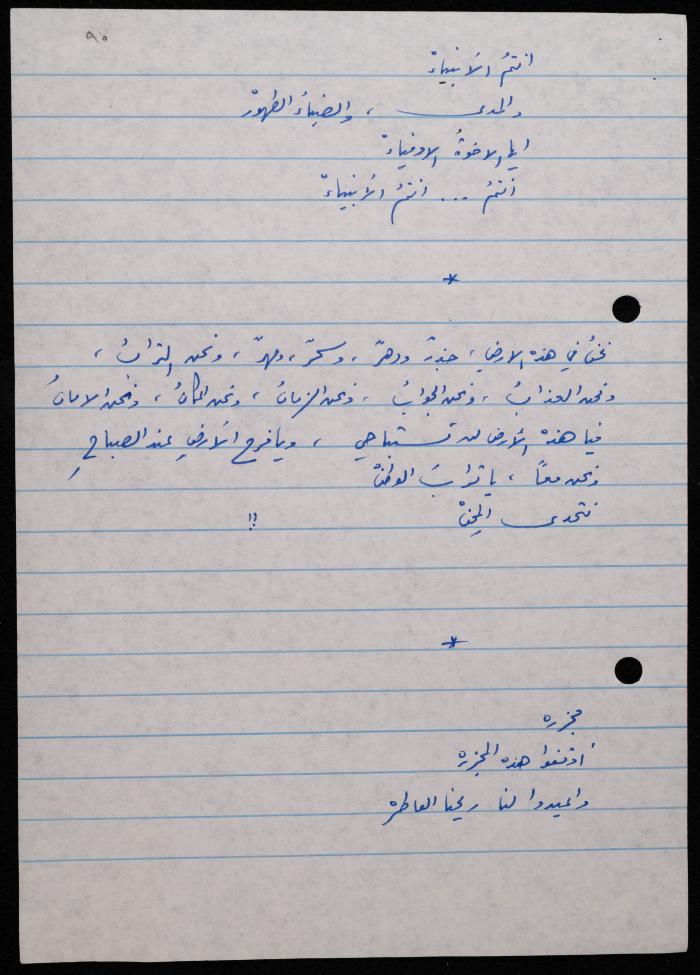 ٩٠
انتمُ الأنبياءْ
والمدى ، والضياءُ الطهورْ
ايا الاخوةُ الاوفياءْ
انتمُ ... انتمُ الأنبياءْ
*
نحنُ في هذه الارضِ ، جندٌ ودهرٌ ، وسحرٌ ، ومهرٌ ، ونحن الترابُ ،
ونحن العذابُ ، ونحن الجوابُ ، ونحن الزمانُ ، ونحن المكانُ ، ونحن الامانُ
فيا هذه الأرض لن تستباحي ، ويا فرح الأرضِ عند الصباحِ
ونحن معاً ، يا ترابَ الوطنْ
نتحدى المِحنْ !!
*
مجزره
أوقفوا هذه المجزره
واعيدوا لنا ريحنا العاطره